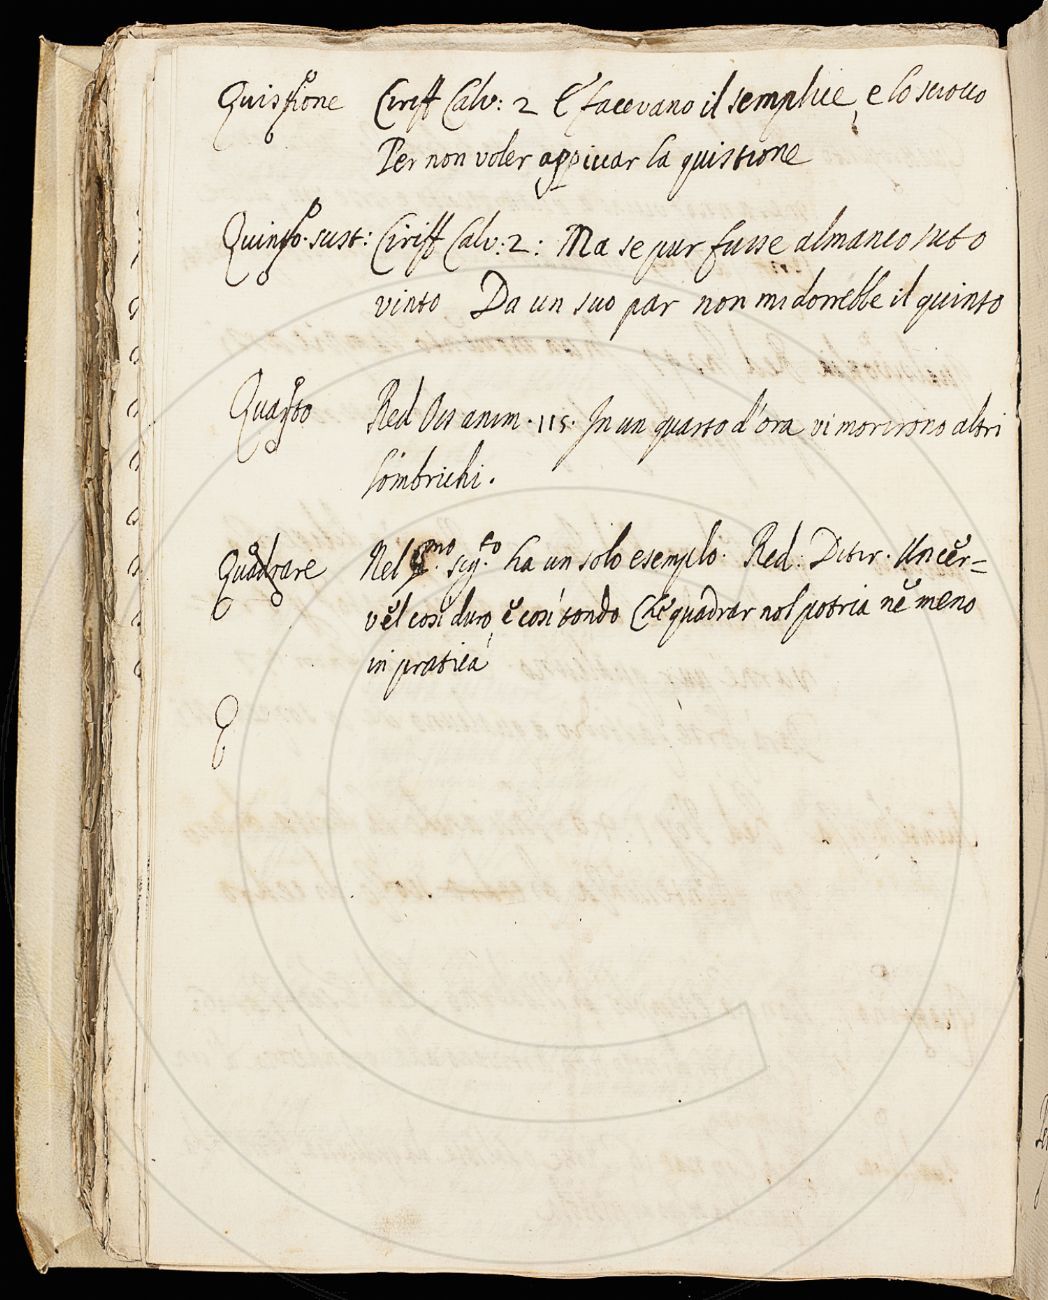 Quistione Ciriff Calv: 2 E facevano il semplice, e lo sciocco
Per non voler appiccar la quistione
Quinto. sust: Ciriff Calv: 2: Ma se pur fusse almanco suto
vinto Da un suo par non mi dorrebbe il quinto
Quarto Red Oss anim. 115. In un quarto d'ora vi morirono altri
lombrichi.
Quadrare Nel pmo. sigto. ha un solo esemplo. Red: Ditir. Un cer=
vel così duro, e così tondo Che quadrar nol potria ne meno
in pratica